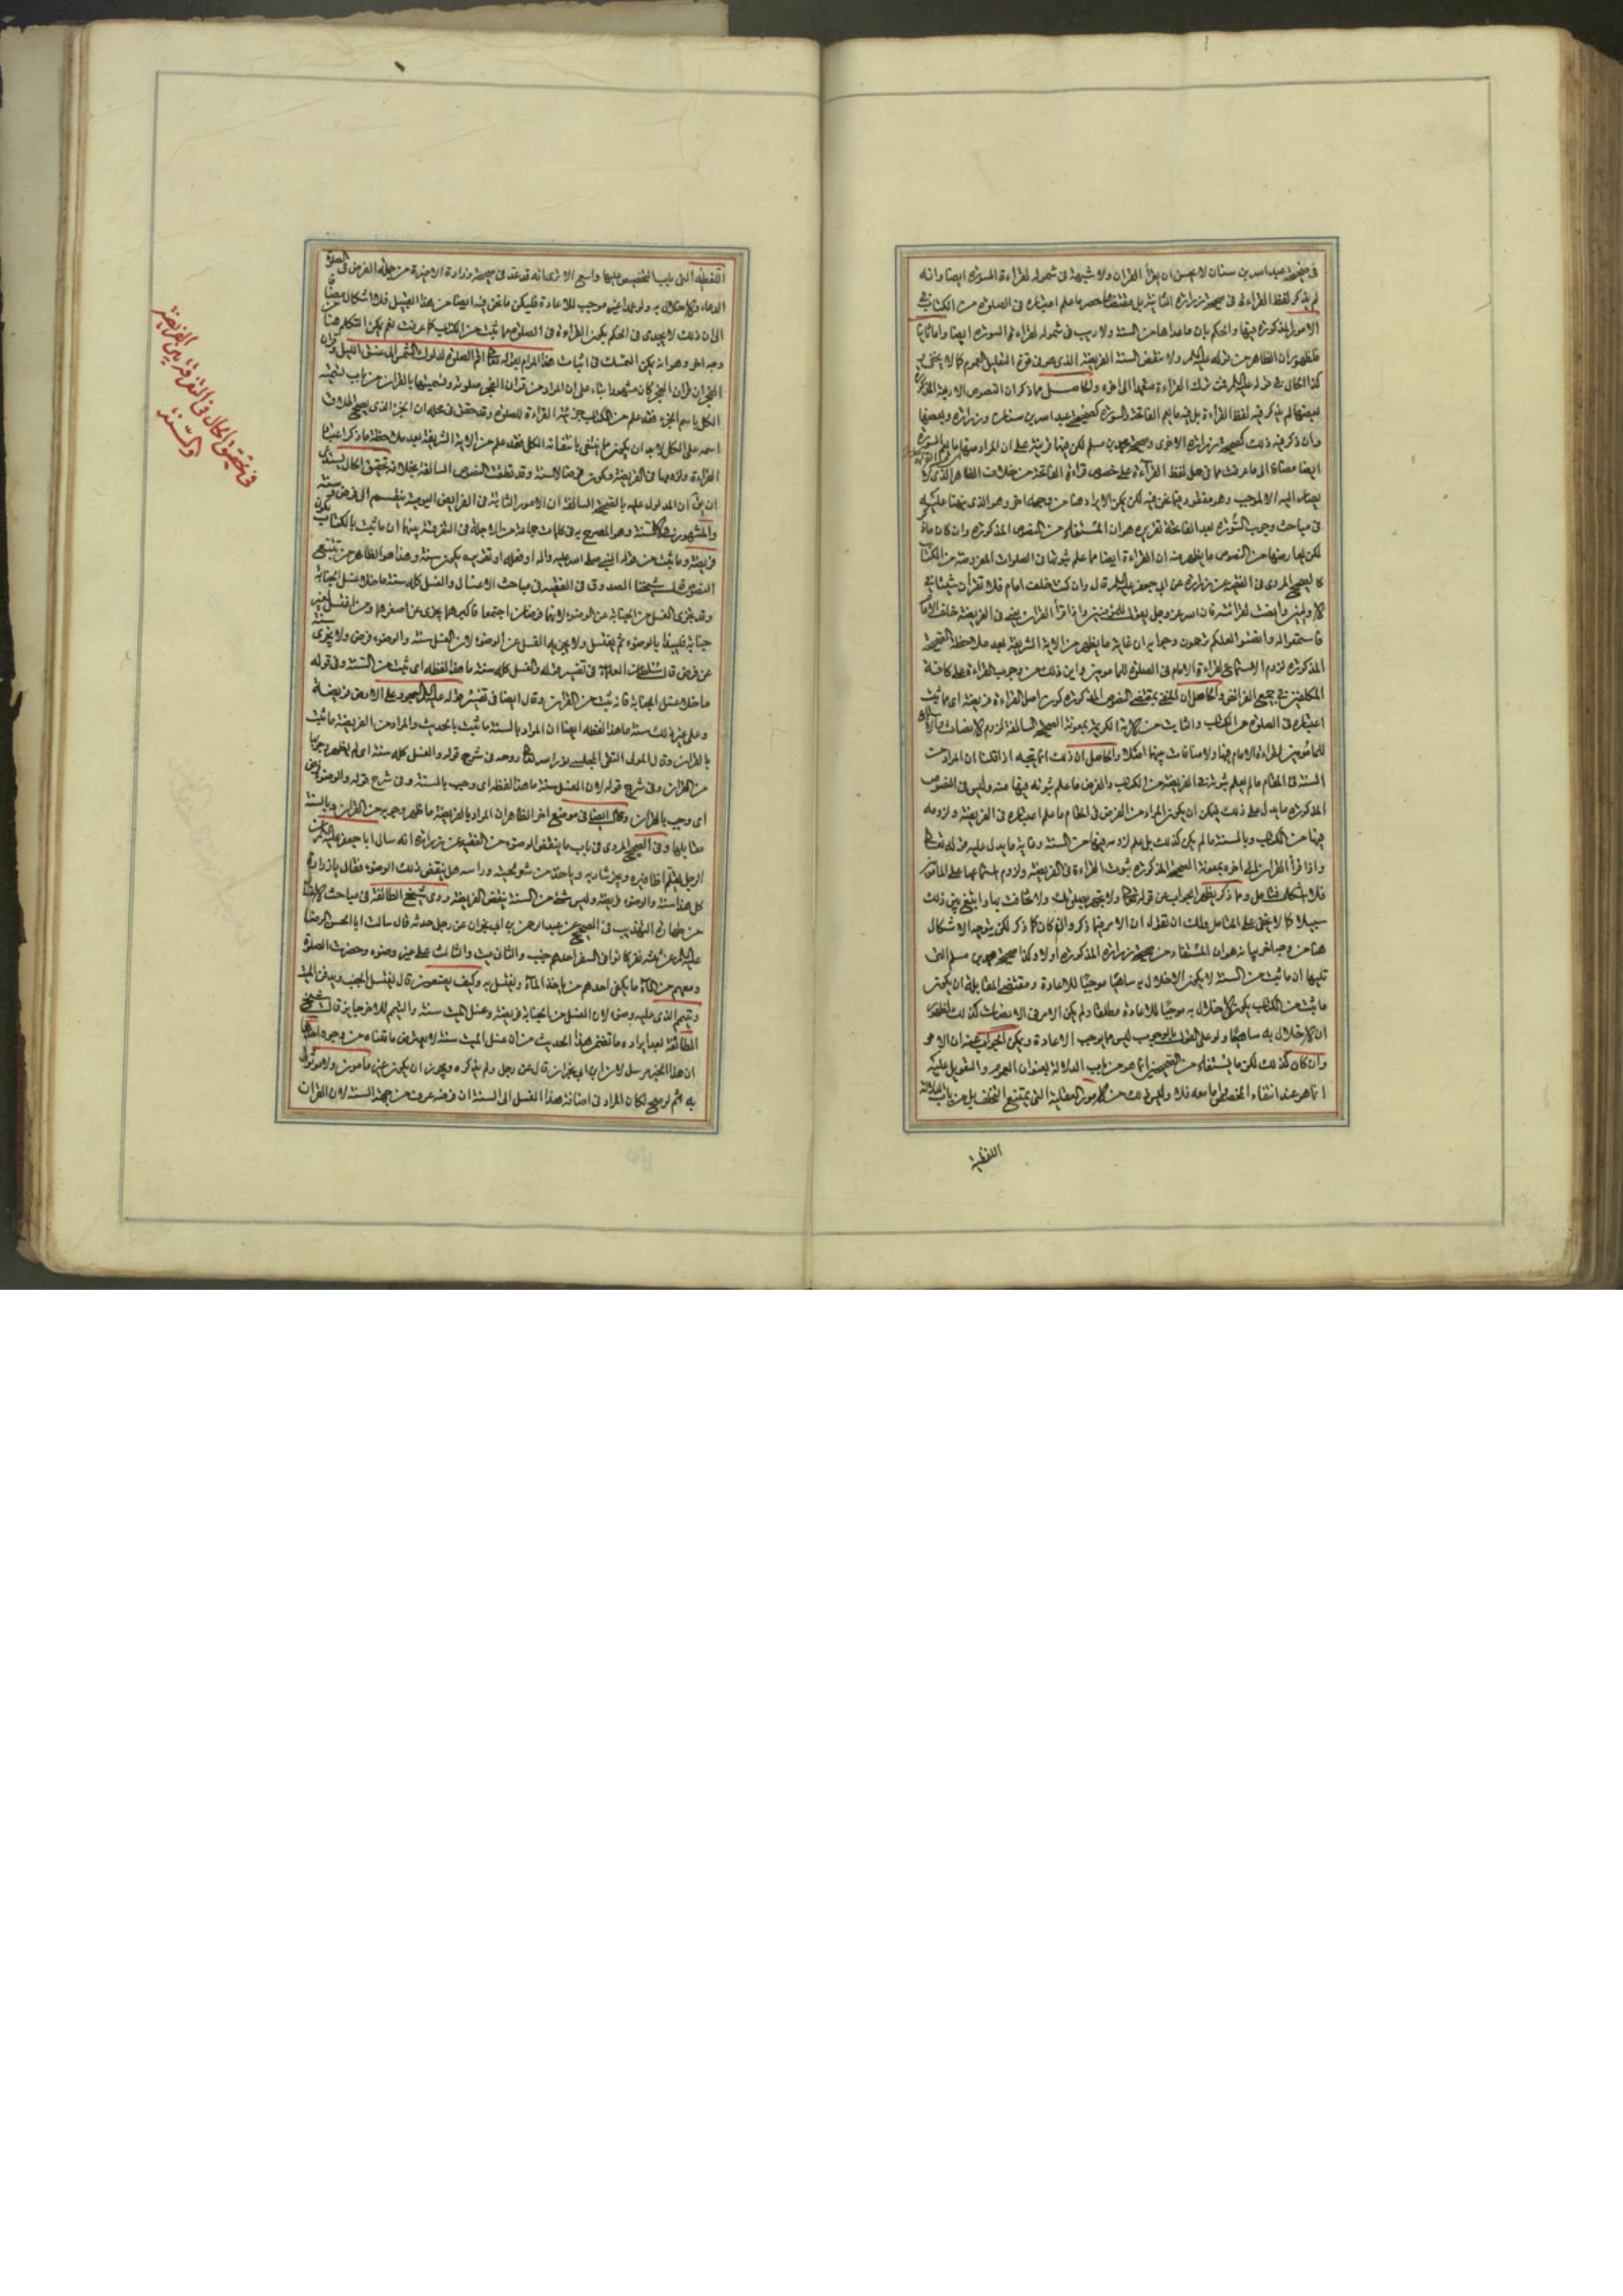 في صحيحة عبد الله بن سنان لا يحسن ان يقرأ القران ولا شبهة في شموله لقراءة السورة ايضا وانه
لم يذكر لفظ القراءة في صحيحة زرارة الثانية بل مقتضاها حصر ما علم اعتباره في الصلوة من الكتاب في
الامور المذكورة فيها والحكم بان ما عداها من السنة ولا ريب في شموله لقراءة السورة ايضا واما ثانيا
فلظهور ان الظاهر من قوله عليه السلام ولا تنقض السنة الفريضة الذي هو في قوة التعليل العموم كما لا يخفى
كذا الحال في قوله عليه السلام فمن ترك القراءة متعمدا الى اخره والحاصل مما ذكر ان النصوص الاربعة المذكورة
بعضها لم يذكر فيه لفظ القراءة بل فيه ما يعم الفاتحة والسورة كصحيحة عبد الله بن سنان وزرارة وبعضها
وان ذكر فيه ذلك كصحيحة زرارة الاخرى وصحيحة محمد بن مسلم لكن فيها قرينة على ان المراد منها ما يعم السورة
ايضا مضافا الى ما عرفت مما في حمل لفظ القراءة على خصوص قراءة الفاتحة من خلاف الظاهر الذي لا
يصار اليه الا لموجب وهو مفقود فيما نحن فيه لكن يمكن الايراد هنا من وجه اخر وهو الذي نبهنا عليه
في مباحث وجوب السورة بعد الفاتحة تقريره هو ان المستفاد من النصوص المذكورة وان كان ما ذكر
لكن يعارضها من النصوص ما يظهر منه ان القراءة ايضا مما علم ثبوتها في الصلوات المفروضة من الكتاب
كالصحيح المروي في الفقيه عن زرارة عن ابي جعفر عليه السلام قال وان كنت خلف امام فلا تقرأن شيئا في
الاوليين وانصت لقرائته فان الله عز وجل يقول للمؤمنين واذا قرأ القران يعني في الفريضة خلف الامام
فاستمعوا له وانصتوا لعلكم ترحمون وجوابه ان غاية ما يظهر من الاية الشريفة بعد ملاحظة الصحيحة
المذكورة لزوم الاستماع لقراءة الامام في الصلوة للمامومين واين ذلك من وجوب القراءة على كافة
المكلفين في جميع الفرائض والحاصل ان المنفي بمقتضى النصوص المذكورة كون اصل القراءة فريضة اي ما ثبت
اعتباره في الصلوة من الكتاب والثابت من الاية الكريمة بمعونة الصحيحة السالفة لزوم الانصات
للمأمومين لقراءة الامام فيها ولا منافات بينهما اصلا والحاصل ان ذلك انما يتجه اذا قلنا ان المراد من
السنة في المقام ما لم يعلم ثبوته في الفريضة من الكتاب والفرض ما علم ثبوته فيها منه وليس في النصوص
المذكورة ما يدل على ذلك فيمكن ان يكون المراد من الفرض في المقام ما علم اعتباره في الفريضة ولزومه
فيها من الكتاب وبالسنة ما لم يكن كذلك بل علم لزومه فيها من السنة وغاية ما يدل عليه قوله تعالى
واذا قرأ القران الى اخره بمعونة الصحيحة المذكورة ثبوت القراءة في الفريضة ولزوم استماعها على المأموم
فلا اشكال فتامل ومما ذكر يظهر الجواب عن قوله تعالى ولا تجهر بصلوتك ولا تخافت بها وابتغ بين ذلك
سبيلا كما لا يخفى على المتامل ولك ان تقول ان الامر فيما ذكر وان كان كما ذكر لكن يتوجه الاشكال
هنا من وجه اخر بيانه هو ان المستفاد من صحيحة زرارة المذكورة اولا وكذا صحيحة محمد بن مسلم التي
تليها ان ما ثبت من السنة لا يكون الاخلال به ساهيا موجبا للاعادة ومقتضى المقابلة ان يكون
ما ثبت من الكتاب يكون الاخلال به موجبا للاعادة مطلقا ولم يكن الامر في الانصات كذلك لظهور
ان الاخلال به ساهيا ولو على القول بالوجوب ليس مما يوجب الاعادة ويمكن الجواب عنه ان الامر
وان كان كذلك لكن ما يستفاد من الصحيحتين انما هو من باب الدلالة بعنوان العموم والتعويل عليه
انما هو عند انتفاء المخصص واما معه فلا وليس ذلك من الامور العقلية التي يمتنع التخلف بل من باب الدلالة
اللفظية
اللفظية التي باب التخصيص فيها واسع الا ترى انه قد عد في صحيحة زرارة الاخيرة من جملة الفرض في الصلوة
الدعاء وكلا الاخلال به ولو عمدا غير موجب للاعادة فليكن ما نحن فيه ايضا من هذا القبيل فلا اشكال مضافا
الى ان ذلك لا يجدي في الحكم بكون القراءة في الصلوة مما ثبت من الكتاب كما عرفت نعم يمكن التكلم هنا من
وجه اخر وهو انه يمكن التمسك في اثبات هذا المرام بقوله تعالى اقم الصلوة لدلوك الشمس الى غسق الليل وقران
الفجر ان قران الفجر كان مشهودا بناء على ان المراد من قران الفجر صلوته وتسميتها بالقران من باب تسمية
الكل باسم الجزء فقد علم من الكتاب جزئية القراءة للصلوة وقد حقق في محله ان الجزء الذي يصح اطلاق
اسمه على الكل لا بد ان يكون مما ينتفي بانتفائه الكل فقد علم من الاية الشريفة بعد ملاحظة ما ذكر اعتبار
القراءة ولزومها في الفريضة فيكون فرضا لا سنة وقد نطقت النصوص السالفة بخلافه تحقيق الحال يستدعي
ان يق ان المدلول عليه بالصحيحة السالفة ان الامور الثابتة في الفرايض اليومية ينقسم الى فرض وسنة
والمشهور في الالسنة وهو المصرح به في كلمات جماعة من الاجلة في التفرقة بينهما ان ما ثبت بالكتاب يكون
فريضة وما ثبت من قول النبي صلى الله عليه واله او فعله او تقريره يكون سنة وهذا هو الظاهر من تتبع
النصوص قال شيخنا الصدوق في الفقيه في مباحث الاغسال والغسل كله سنة ما خلا غسل الجنابة
وقد يجزى الغسل من الجنابة عن الوضوء لانهما فرضان اجتمعا فاكبرهما يجزى عن اصغرهما ومن اغتسل لغير
جنابة فليبدأ بالوضوء ثم يغتسل ولا يجزيه الغسل عن الوضوء لان الغسل سنة والوضوء فرض ولا يجزى سنة
عن فرض قال العلامة في تفسير قوله والغسل كله سنة ما هذا لفظه اي ثبت من السنة وفي قوله
ما خلا غسل الجنابة فانه ثبت من القران وقال ايضا في تفسير قوله عليه السلام السجود على الارض فريضة
وعلى غير ذلك سنة ما هذا لفظه ايضا ان المراد بالسنة ما ثبت بالحديث والمراد من الفريضة ما ثبت
بالقران وقال المولى التقي المجلسي نور الله تعالى روحه في شرح قوله والغسل كله سنة اي لم يظهر وجوبها
من القران وفي شرح قوله لان الغسل سنة ما هذا لفظه اي وجب بالسنة وفي شرح قوله والوضوء فرض
اي وجب بالقران وقال ايضا في موضع اخر الظاهر ان المراد بالفريضة ما ظهر وجوبه من القران وبالسنة
مقابلها وفي الصحيح المروي في باب ما ينقض الوضوء من الفقيه عن زرارة انه سال ابا جعفر عليه السلام عن
الرجل يقلم اظافيره ويجز شاربه وياخذ من شعر لحيته وراسه هل ينقض ذلك الوضوء فقال يا زرارة
كل هذا سنة والوضوء فريضة وليس شئ من السنة ينقض الفريضة وروى شيخ الطائفة في مباحث الاغسال
من طهارة التهذيب في الصحيح عن عبد الرحمن بن ابي نجران عن رجل حدثه قال سالت ابا الحسن الرضا
عليه السلام عن ثلثة نفر كانوا في السفر احدهم جنب والثاني ميت والثالث على غير وضوء وحضرت الصلوة
ومعهم من الماء ما يكفي احدهم من ياخذ الماء ويغتسل به وكيف يصنعون قال يغتسل الجنب ويدفن الميت
ويتيمم الذي عليه وضوء لان الغسل من الجنابة فريضة وغسل الميت سنة والتيمم للاخر جايز قال شيخ
الطائفة بعد ايراده ما تضمن هذا الحديث من ان غسل الميت سنة لا يعترض ما قلناه من وجوه احدها
ان هذا الخبر مرسل لان ابن ابي نجران قال عن رجل ولم يذكره ويجوز ان يكون غير مامون ولا موثوق
به ثم لو صح لكان المراد في اضافة هذا الغسل الى السنة ان فرضه عرف من جهة السنة لان القران
في تحقيق الحال في التفرقة بين الفريضة
والسنة